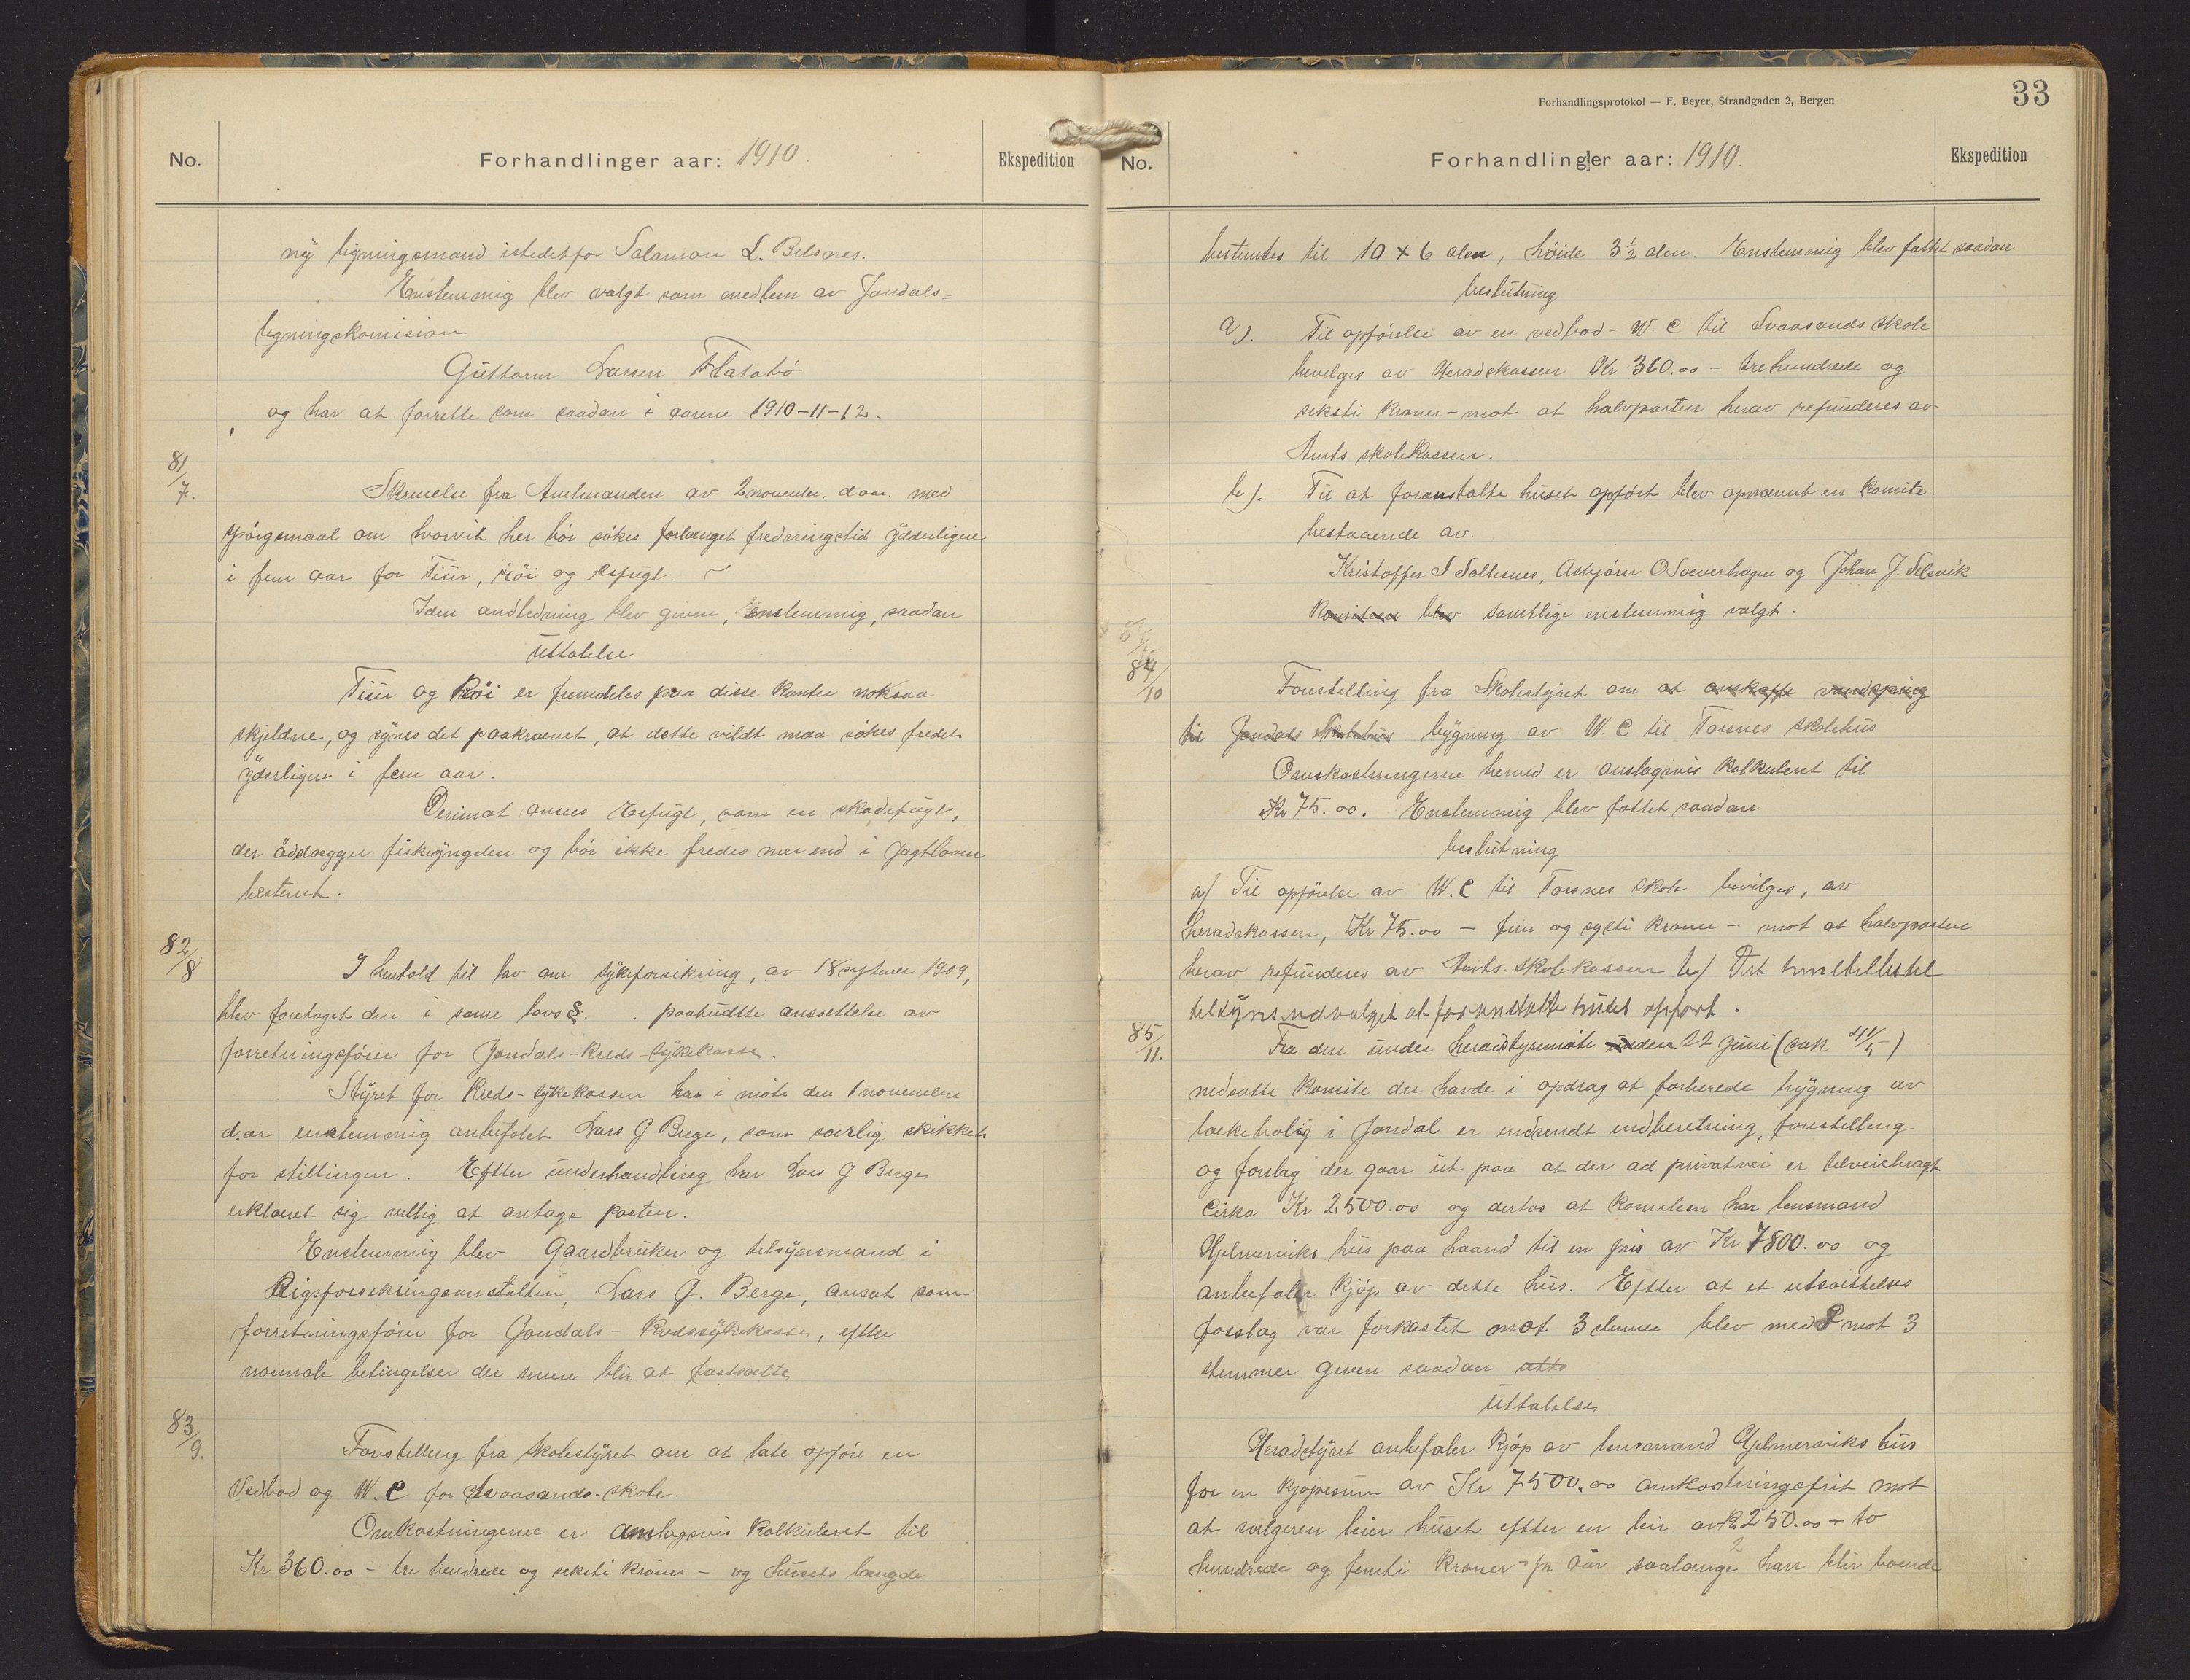 No.
Forhandlinger aar: 1910.
Ekspedition
ny ligningsmand istedetfor Salamon L. Belsnes.
Enstemmig blev valgt som medlem av Jondals-
ligningskomision
Guttorm Larsen Flatabö
og har at forrette som saadan i aarene 1910-11-12.
81/7.
Skrivelse fra Amtmanden av 2 november. d aa. med
spörgsmaal om hvorvit her bör sökes forlænget fredningstid ydderligere
i fem aar for Tiur, Röi og Erfugl.
I den andledning blev given, Enstemmig, saadan
Uttalelse
Tiur og Röi er fremdeles paa disse kanter noksaa
skjeldne, og synes det paakrævet, at dette vildt maa sökes fredet
yderligere i fem aar.
Derimot ansees Erfugl, som en skadefugl,
der ödelægger fiskeyngelen og bör ikke fredes mer end i Jagtloven
bestemt.
82/8
I henhold til lov om sykeforsikring, av 18 september 1909,
blev foretaget den i same lovs §. . paabudte ansættelse av
forretningsförer for Jondals-Kreds-sykekasse.
Styret for Kreds-sykekassen har i möte den 1 november
d.aar enstemmig anbefalet Lars G Berge, som særlig skikket
for stillingen. Efter underhandling har Lars G Berge
erklæret sig villig at antage posten.
Enstemmig blev Gaardbruker og tilsynsmand i
Rigsforsikringsanstalten, Lars G. Berge, ansat som
forretningsförer for Jondals-Kredssykekasse, efter
normale betingelser der senere blir at fastsætte
83/9.
Forestelling fra skolestyret om at late opföre en
Vedbod og W.C for Svaasands-skole.
Omkostningerne er anslagsvis kalkuleret til
Kr 360.oo - tre hundrede og seksti kroner - og husets længde
Forhandlingsprotokol — F. Beyer, Strandgaden 2, Bergen
33
No.
Forhandlinger aar: 1910.
Ekspedition
bestemtes til 10 x 6 alen, höide 3½ alen. Enstemmig blev fattet saadan
beslutning
a). Til opförelse av en vedbod - W. C til Svaasands skole
bevilges av Heradskassen Kr 360.oo - tre hundrede og
seksti kroner - mot at halvparten herav refunderes av
Amts skolekassen.
b). Til at foranstalte huset opfört blev opnævnt en komite
bestaaende av.
Kristoffer S Solesnes, Asbjörn O Sæverhagen og Johan J. Selsvik
Komiteen blev samtlige enstemmig valgt.
84/10
Forestelling fra Skolestyret om at anskaffe vandspring
til Jondals Skolehus bygning av W. C til Torsnes skolehus
Omkostningerne herved er anslagsvis kalkuleret til
Kr 75.oo. Enstemmig blev fattet saadan
beslutning
a/ Til opförelse av W.C til Torsnes skole bevilges, av
heradskassen, Kr 75.oo - fem og sytti kroner - mot at halvparten
herav refunderes av Amts-skolekassen b/ Det
tilsynsudvalget at foranstalte huset opfört.
85/11.
Fra den under heradstyremöte 22 juni (sak 41/5)
nedsatte komite der havde i opdrag at forberede bygning av
lækebolig i Jondal er indsendt indberetning, forestelling
og forslag der gaar ut paa at der ad privat vei er tilveiebragt
cirka Kr 2500.oo og dertos at komiteen har lensmand
Hjelmerviks hus paa haand til en pris av Kr 7800.oo og
anbefaler kjöp av dette hus. Efter at et utsættelses
forslag var forkastet mot 3 stemmer blev med mot 3
stemmer given saadan
Uttalelse
Heradstyret anbefaler kjöp av lensmand Hjelmerviks hus
for en kjöpesum av Kr 7500.oo omkostningsfrit mot
at sælgeren leier huset efter en leie av Kr 250.oo - to
hundrede og femti kroner - pr aar saalænge han blir boende